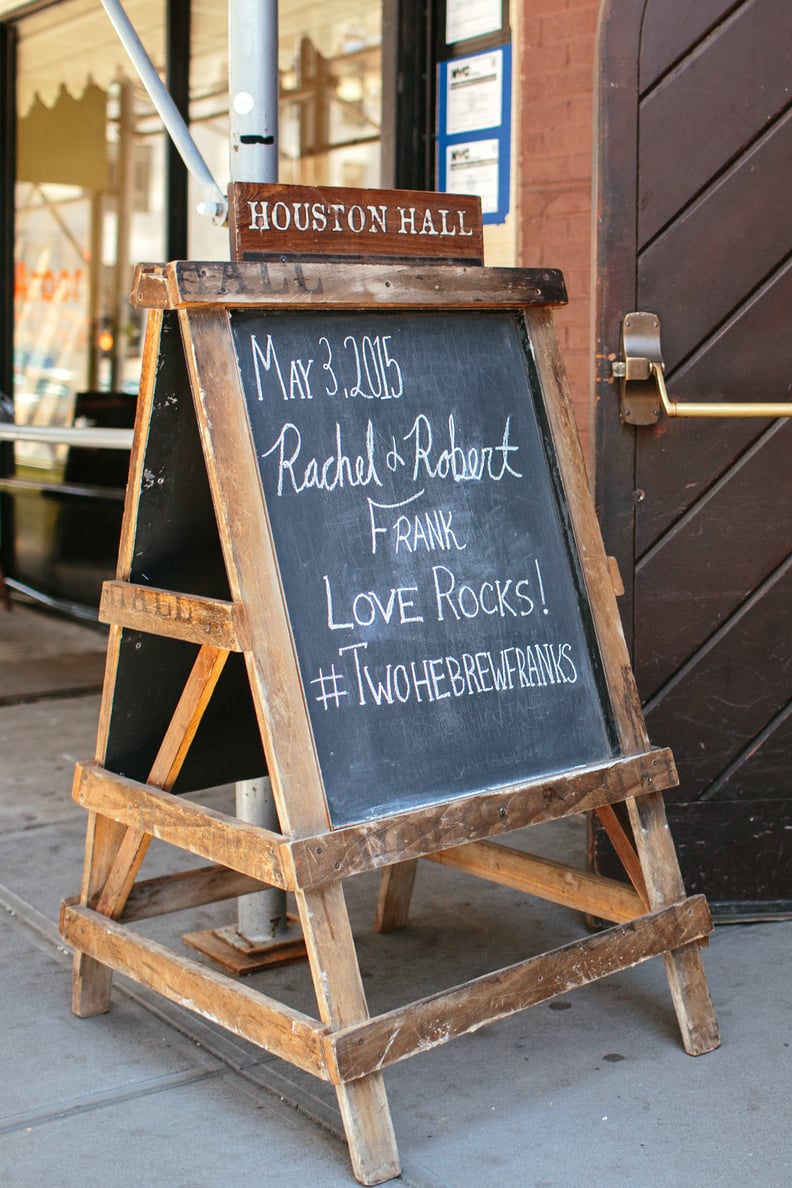 NYC
NYC
HOUSTON HALL
HALL
MAY 3, 2015
Rachel & Robert
FRANK
LOVE ROCKS!
#TWOHEBREWFRANKS
HALL